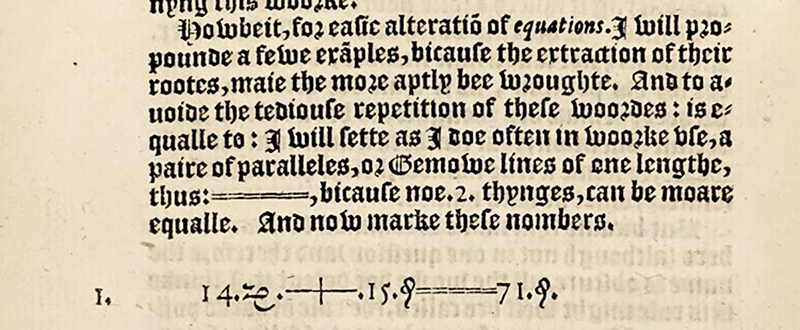 nyng this woorke.
Howbeit, for easie alteratiō of equations. I will pro-
pounde a fewe exāples, bicause the extraction of their
rootes, maie the more aptly bee wroughte. And to a-
uoide the tediouse repetition of these woordes : is e-
qualle to : I will sette as I doe often in woorke vse, a
paire of paralleles, or Gemowe lines of one lengthe,
thus: =====, bicause noe .2. thynges, can be moare
equalle. And now marke these nombers.
1. 14.ʒe.—+—.15.ꝯ=====71.ꝯ.